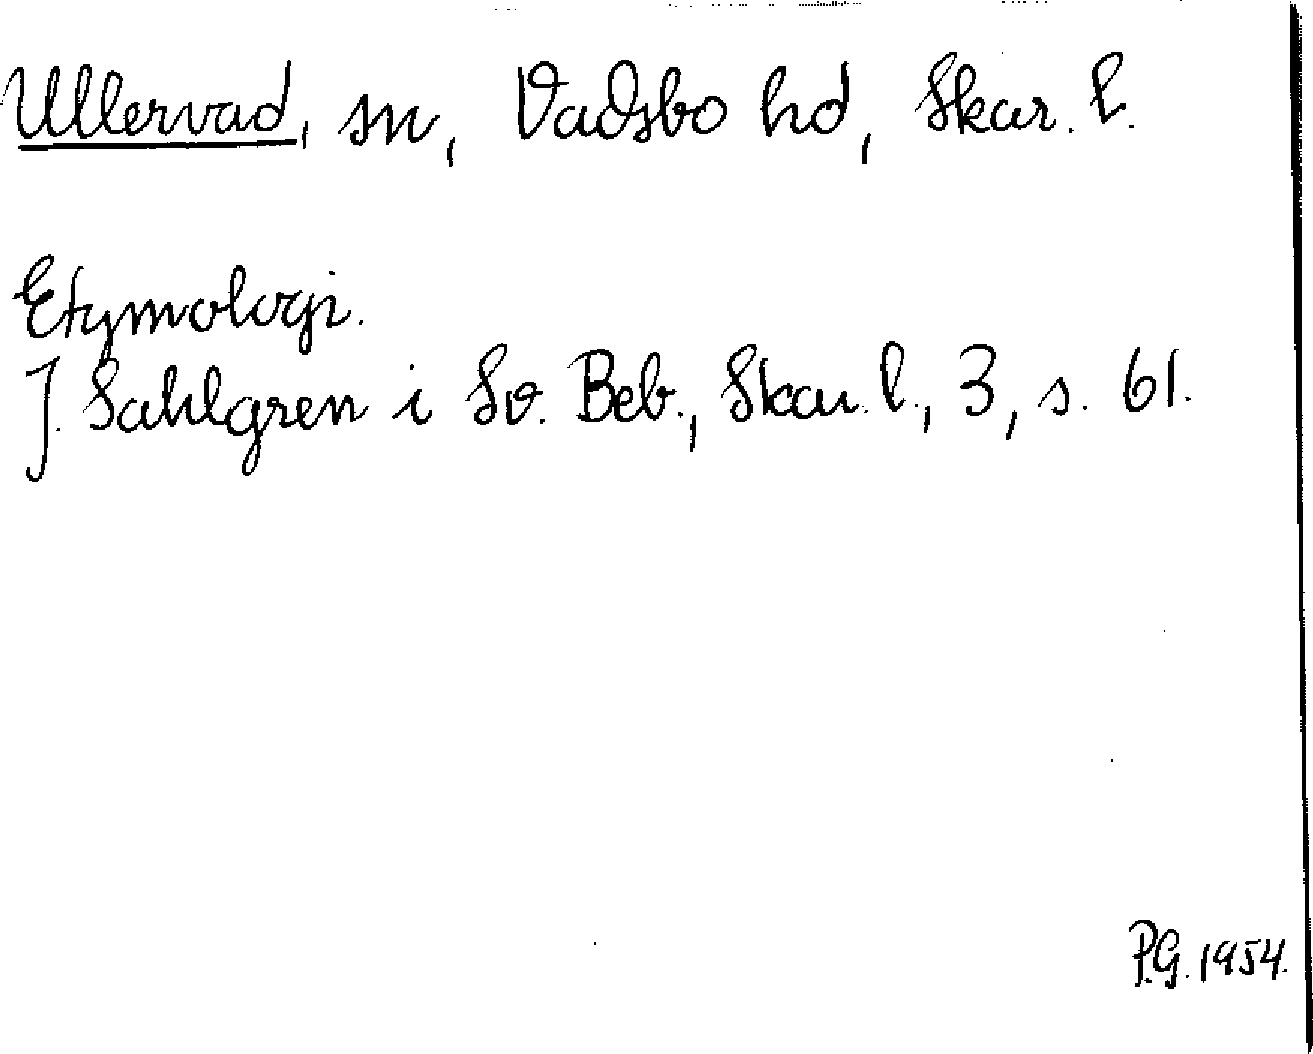 Ullervad, sn, Vadsbo hd, Skar. l.
Etymologi.
J. Sahlgren i Sv. Beb., Skar. l., 3, s. 61.
P.G. 1954.